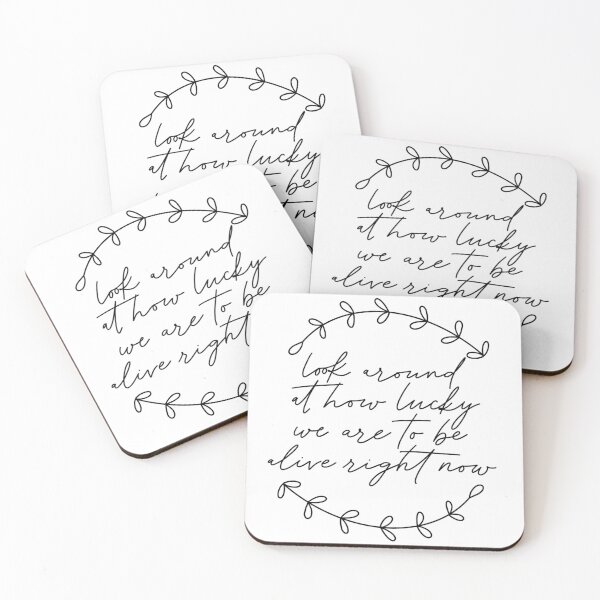 look around
at how lucky
to be
look around
at how lucky
we are to be
alive right now
look around
at how lucky
we are to be
alive right
look around
at how lucky
we are to be
alive right now